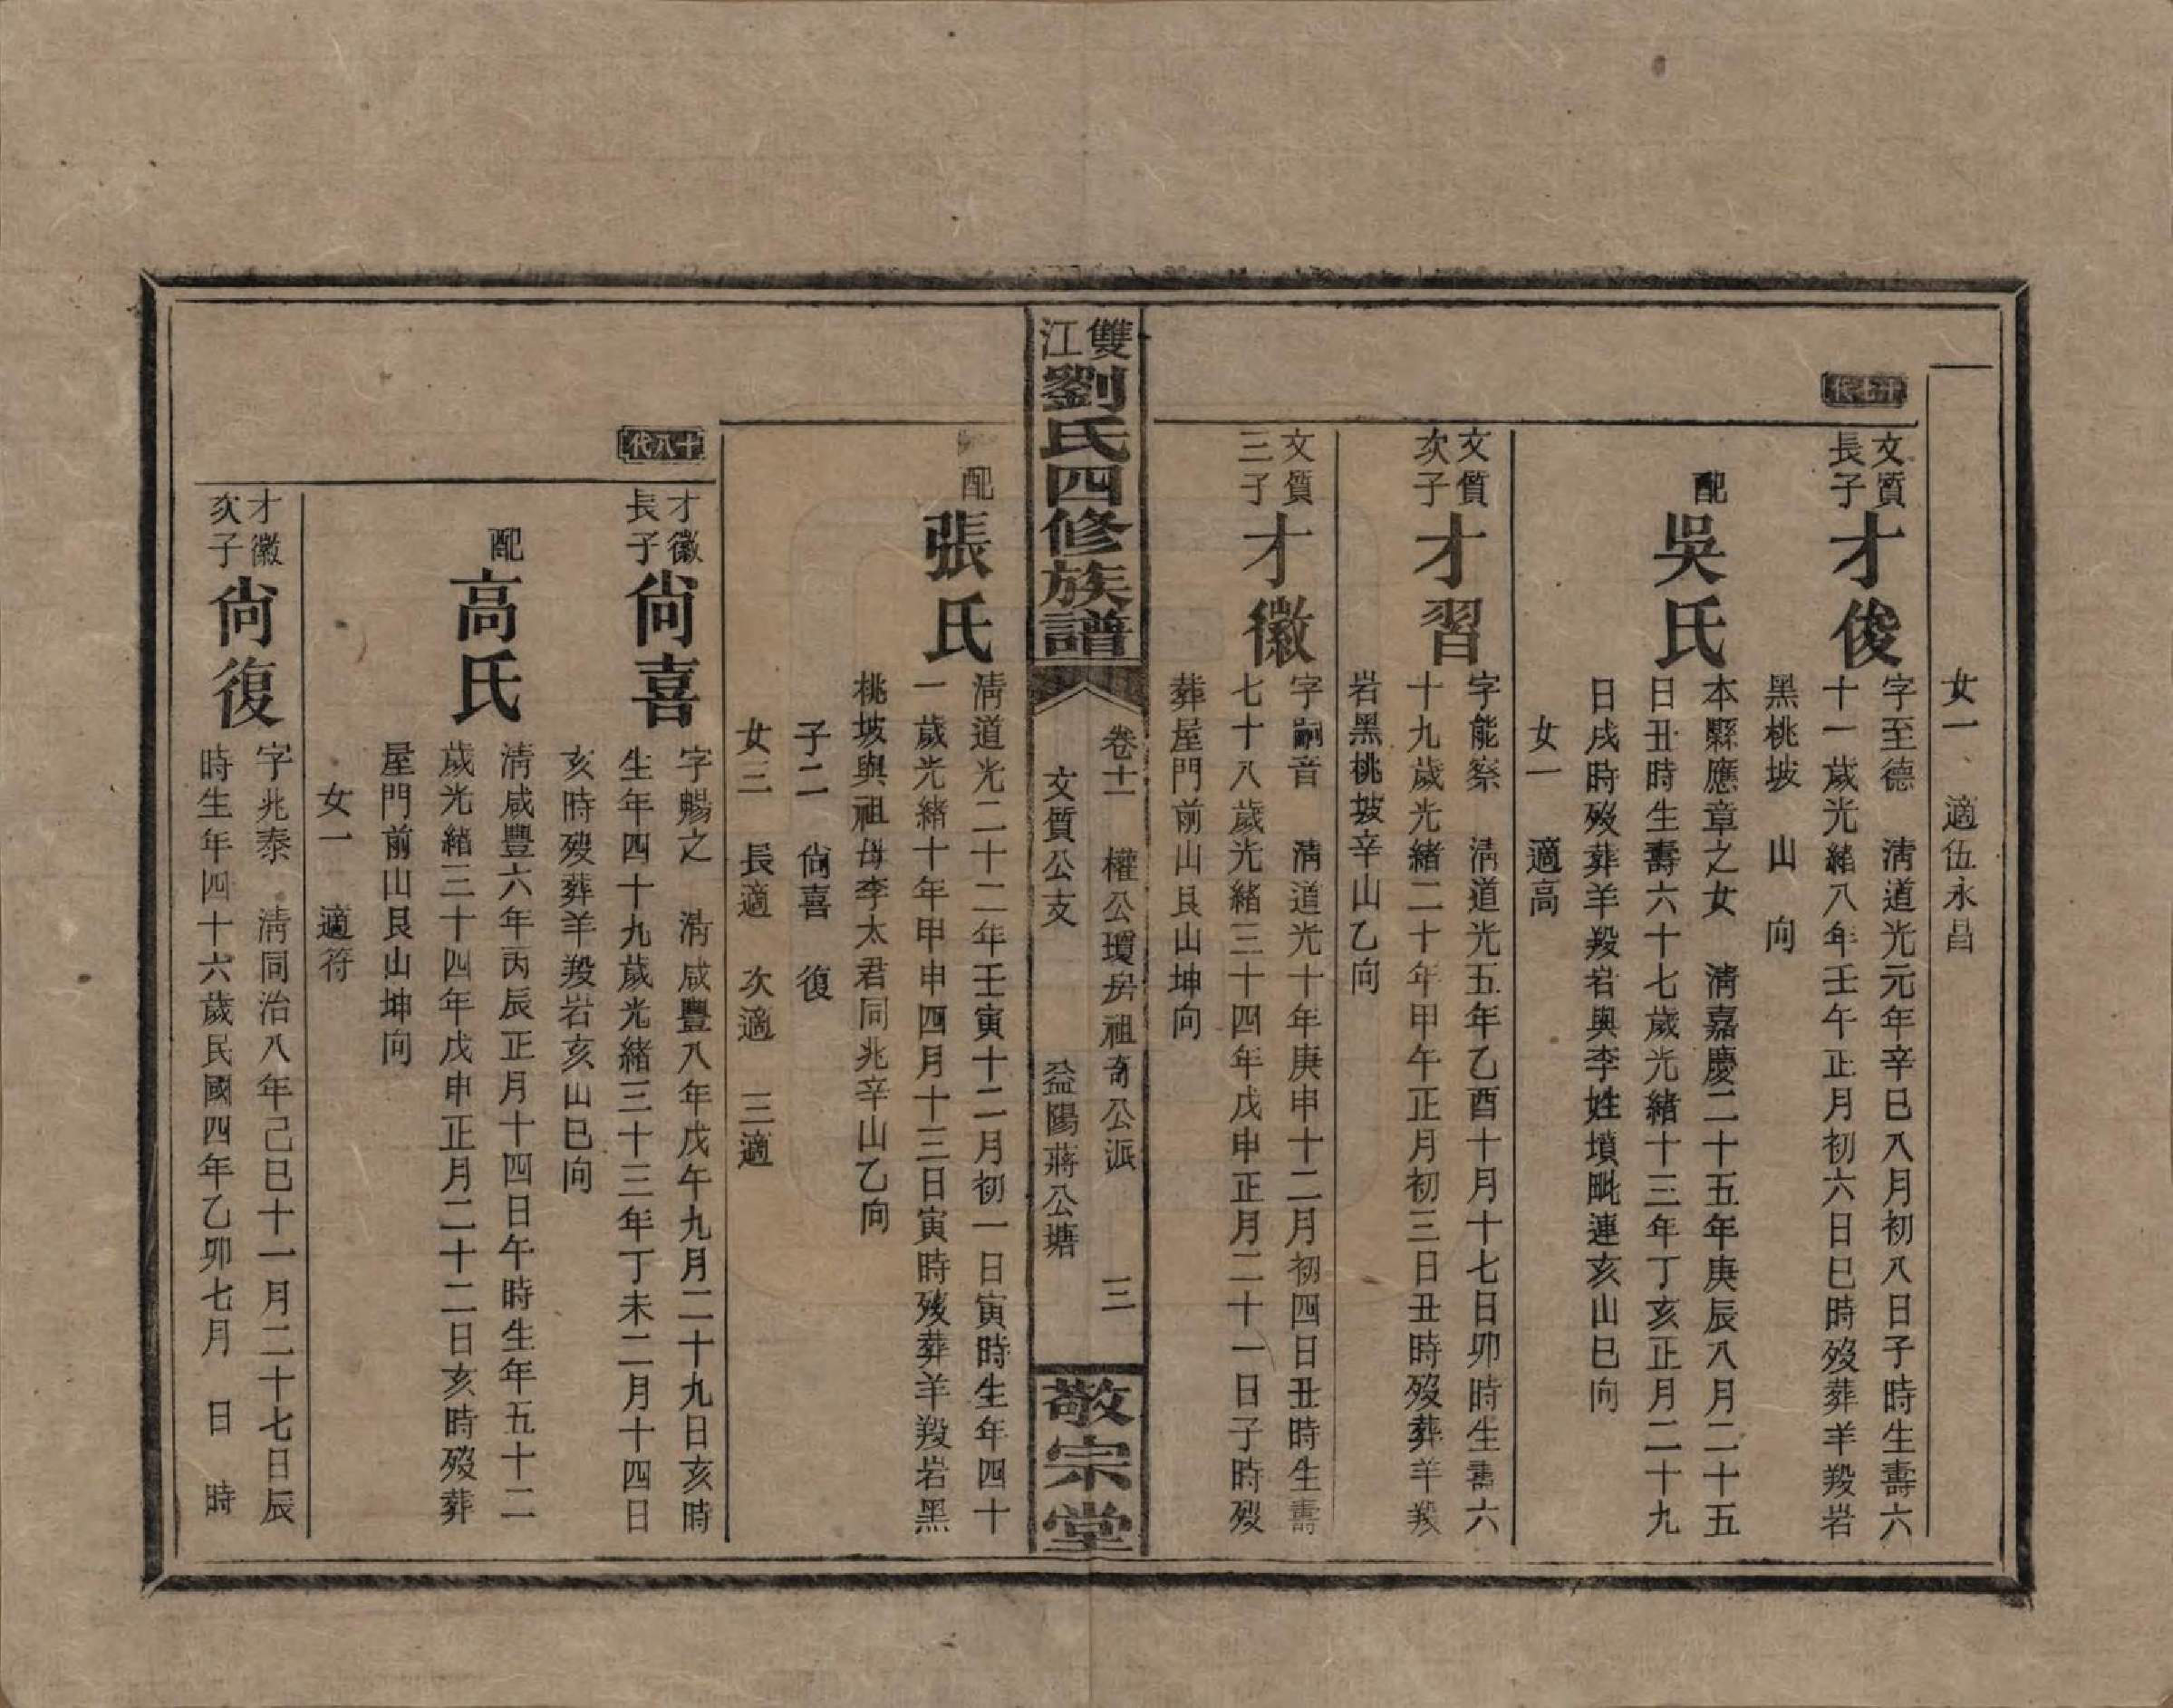 女一 適伍永昌
十七代
文質長子 才俊 字至德 淸道光元年辛巳八月初八日子時生壽六
十一歲光緒八年壬午正月初六日巳時歿葬羊羖岩
黑桃坡 山 向
配 吳氏 本縣應章之女 淸嘉慶二十五年庚辰八月二十五
日丑時生壽六十七歲光緒十三年丁亥正月二十九
日戌時歿葬羊羖岩與李姓墳毗連亥山巳向
女一 適高
文質次子 才習 字能察 淸道光五年乙酉十月十七日卯時生壽六
十九歲光緒二十年甲午正月初三日丑時歿葬羊羖
岩黑桃坡辛山乙向
文質三子 才徽 字嗣音 淸道光十年庚申十二月初四日丑時生壽
七十八歲光緒三十四年戊申正月二十一日子時歿
葬屋門前山艮山坤向
雙江劉氏四修族譜
卷十一 權公瓊房祖奇公派 三
文質公支 益陽蔣公塘
敬宗堂
配 張氏 淸道光二十二年壬寅十二月初一日寅時生年四十
一歲光緒十年甲申四月十三日寅時歿葬羊羖岩黑
桃坡與祖母李太君同兆辛山乙向
子二 尙喜 復
女三 長適 次適 三適
十八代
才徽長子 尙喜 字暢之 淸咸豐八年戊午九月二十九日亥時
生年四十九歲光緒三十三年丁未二月十四日
亥時歿葬羊羖岩亥山巳向
配 高氏 淸咸豐六年丙辰正月十四日午時生年五十二
歲光緒三十四年戊申正月二十二日亥時歿葬
屋門前山艮山坤向
女一 適符
才徽次子 尙復 字兆泰 淸同治八年己巳十一月二十七日辰
時生年四十六歲民國四年乙卯七月 日 時